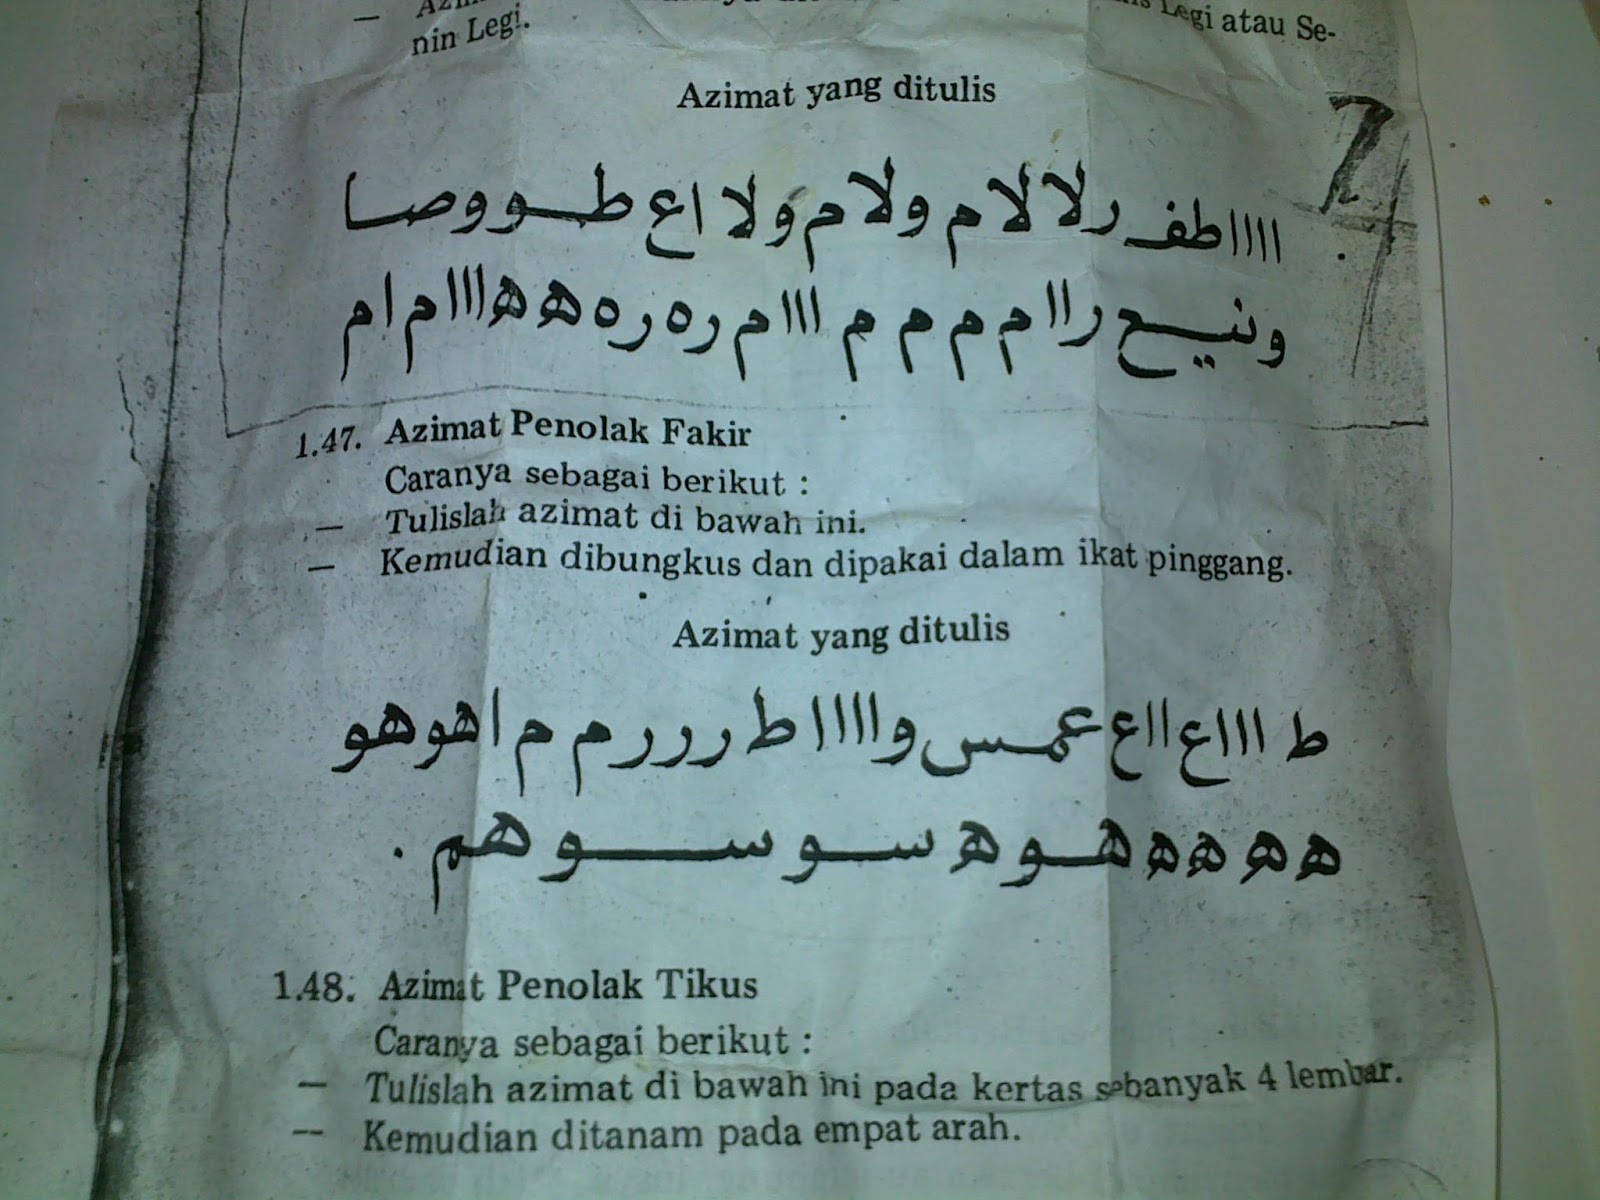 nin Legi. Legi atau Se-
Azimat yang ditulis
ااااطفـ رلا لام ولام ولا اع طـووصـا
ونيـع راام م م م اااام ره ره ههااام ام
1.47. Azimat Penolak Fakir
Caranya sebagai berikut :
— Tulislah azimat di bawah ini.
— Kemudian dibungkus dan dipakai dalam ikat pinggang.
Azimat yang ditulis
ط اااع ااع عمـس وااااا ط رررم م اهوهو
ه ه ه ه هـو ه سـو سـو هم .
1.48. Azimat Penolak Tikus
Caranya sebagai berikut :
— Tulislah azimat di bawah ini pada kertas sebanyak 4 lembar.
— Kemudian ditanam pada empat arah.